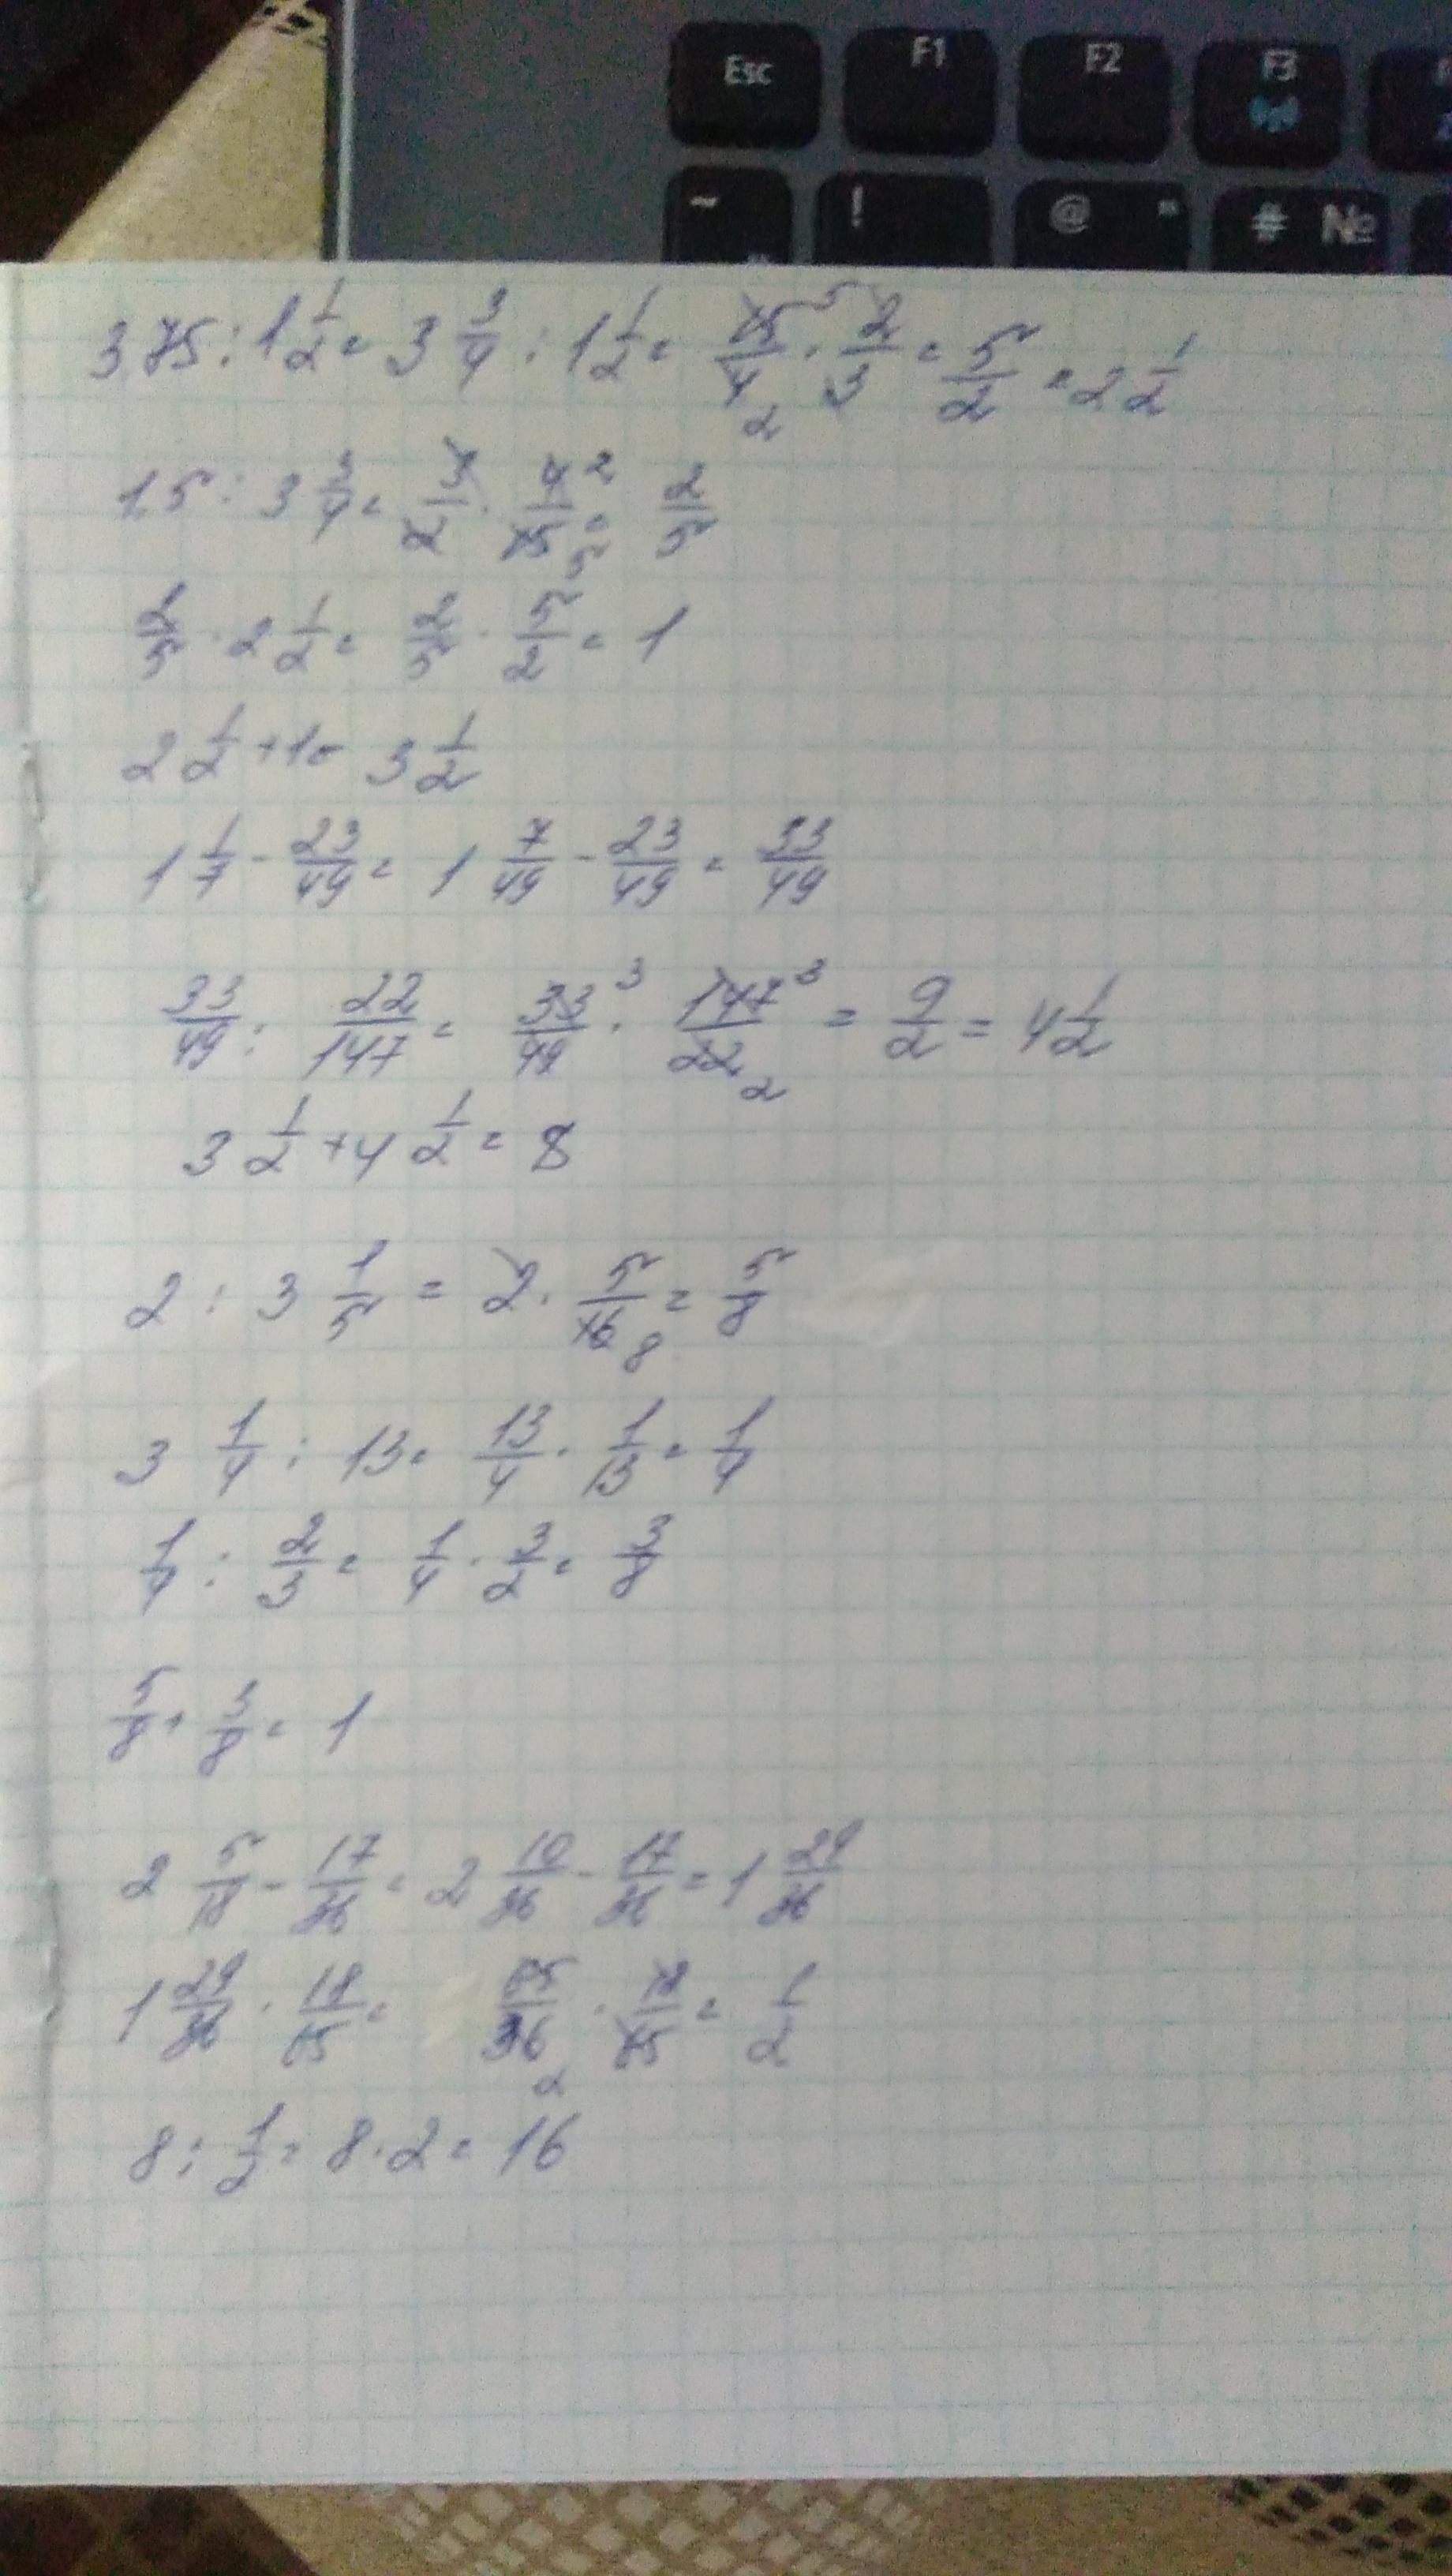 Esc F1 F2 F3
~ ! @ " # №
3,75 : 1 1/2 = 3 3/4 : 1 1/2 = 15/4 · 2/3 = 5/2 = 2 1/2
1,5 : 3 3/4 = 3/2 · 4/15 = 2/5
2/5 · 2 1/2 = 2/5 · 5/2 = 1
2 1/2 + 1 = 3 1/2
1 1/7 - 23/49 = 1 7/49 - 23/49 = 33/49
33/49 : 22/147 = 33/49 · 147/22 = 9/2 = 4 1/2
3 1/2 + 4 1/2 = 8
2 : 3 1/5 = 2 · 5/16 = 5/8
3 1/4 : 13 = 13/4 · 1/13 = 1/4
1/4 : 2/3 = 1/4 · 3/2 = 3/8
5/8 + 3/8 = 1
2 5/18 - 17/36 = 2 10/36 - 17/36 = 1 29/36
1 29/36 · 18/65 = 65/36 · 18/65 = 1/2
8 : 1/2 = 8 · 2 = 16